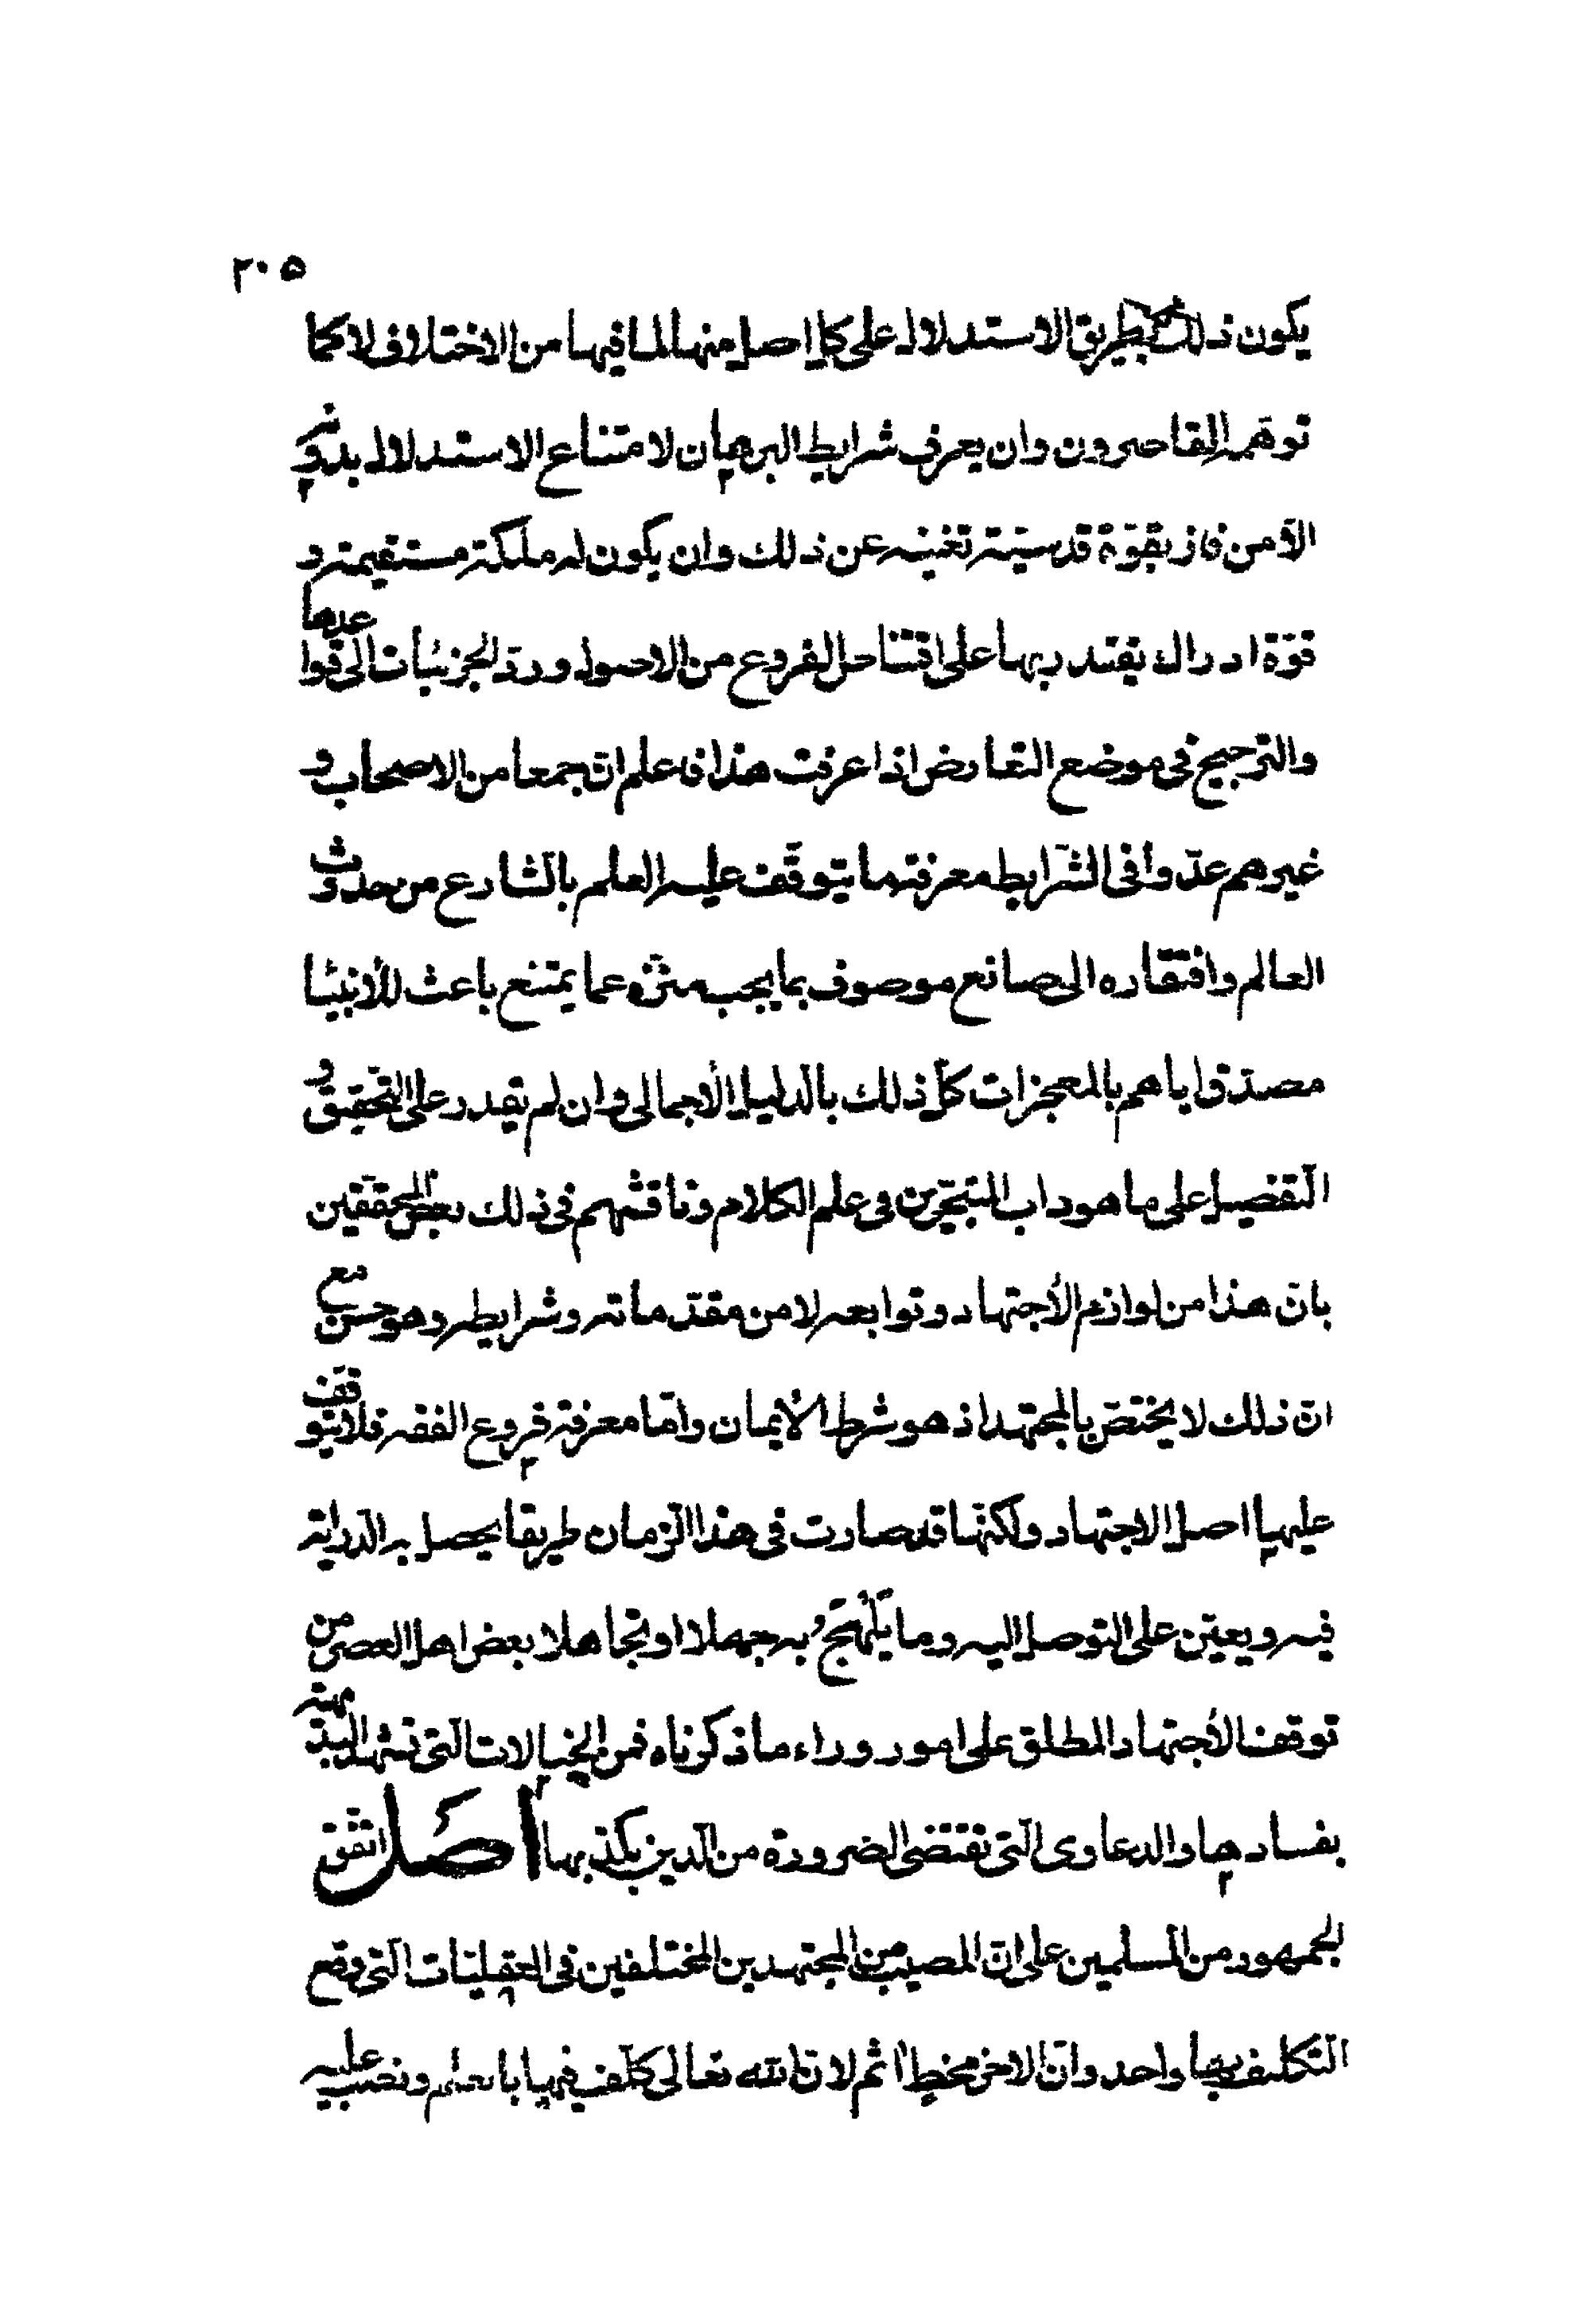 ٢٠٥
يكون ذلك بطريق الاستدلال على كل اصل منها لما فيها من الاختلاف لا كما
توهمه القاصرون وان يعرف شرايط البرهان لامتناع الاستدلال بدونه
الا من فاز بقوّة قدسيّة تغنيه عن ذلك وان يكون له ملكة مستقيمة و
قوّة ادراك يقتدر بها على اقتناص الفروع من الاصول وردّ الجزئيات الى قواعدها
والترجيح فى موضع التعارض اذا عرفت هذا فاعلم انّ جمعا من الاصحاب و
غيرهم عدّوا فى الشّرايط معرفة ما يتوقّف عليه العلم بالشّارع من حدوث
العالم وافتقاره الى صانع موصوف بما يجب منزّه عما يمتنع باعث للأنبيا
مصدّق اياهم بالمعجزات كلّ ذلك بالدّليل الأجمالى وان لم يقدر على التّحقيق و
التفصيل على ما هو داب المتبحّرين فى علم الكلام وناقشهم فى ذلك بعض المحقّقين
بانّ هذا من لوازم الأجتهاد وتوابعه لا من مقدّماته وشرايطه وهو حسن مع
انّ ذلك لا يختصّ بالمجتهد اذ هو شرط الأيمان وامّا معرفة فروع الفقه فلا يتوقّف
عليها اصل الاجتهاد ولكنّها قد صارت فى هذا الزّمان طريقا يحصل به الدّراية
فيه ويعين على التوصل اليه وما يلهج به جهلا او تجاهلا بعض اهل العصر من
توقف الأجتهاد المطلق على امور وراء ما ذكرناه فمن الخيالات التى تشهد البديهة
بفسادها والدعاوى التى تقتضى الضرورة من الدين بكذبها اصل اتّفق
الجمهور من المسلمين على انّ المصيب من المجتهدين المختلفين فى العقليّات التى وقع
التكليف بها واحد وانّ الاخر مخطئ اثم لانّ الله تعالى كلّف فيها بالعلم ونصب عليه